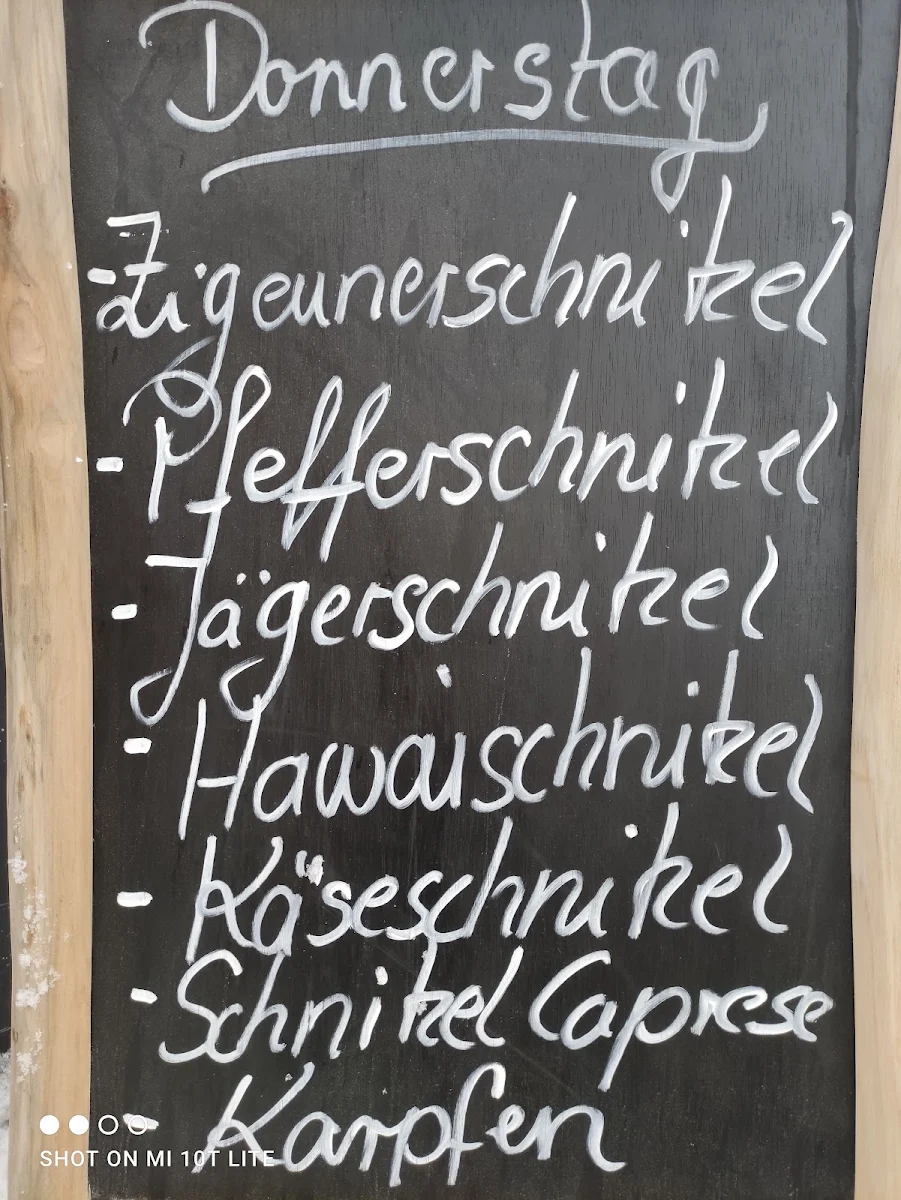 Donnerstag
- Zigeunerschnitzel
- Pfefferschnitzel
- Jägerschnitzel
- Hawaischnitzel
- Käseschnitzel
- Schnitzel Caprese
- Karpfen
SHOT ON MI 10T LITE